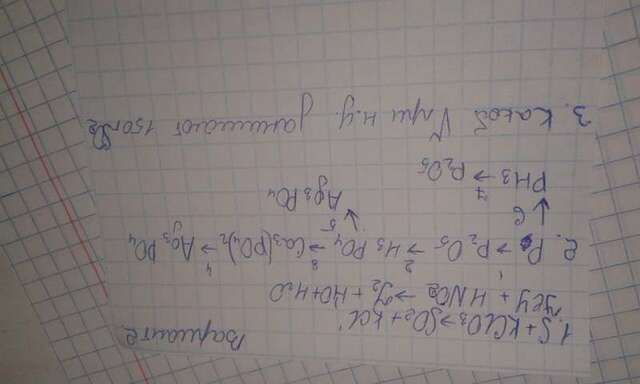 Вариант
1. S + KClO3 → SO2 + KCl
+ HNO3 → J2 + NO + H2O
2. P → P2O5 → H3PO4 → Ca3(PO4)2 → Ag3PO4
1 2 3 4
6 5
PH3 → P2O5 Ag3PO4
7
3. Какой V при н.у. занимают 150г